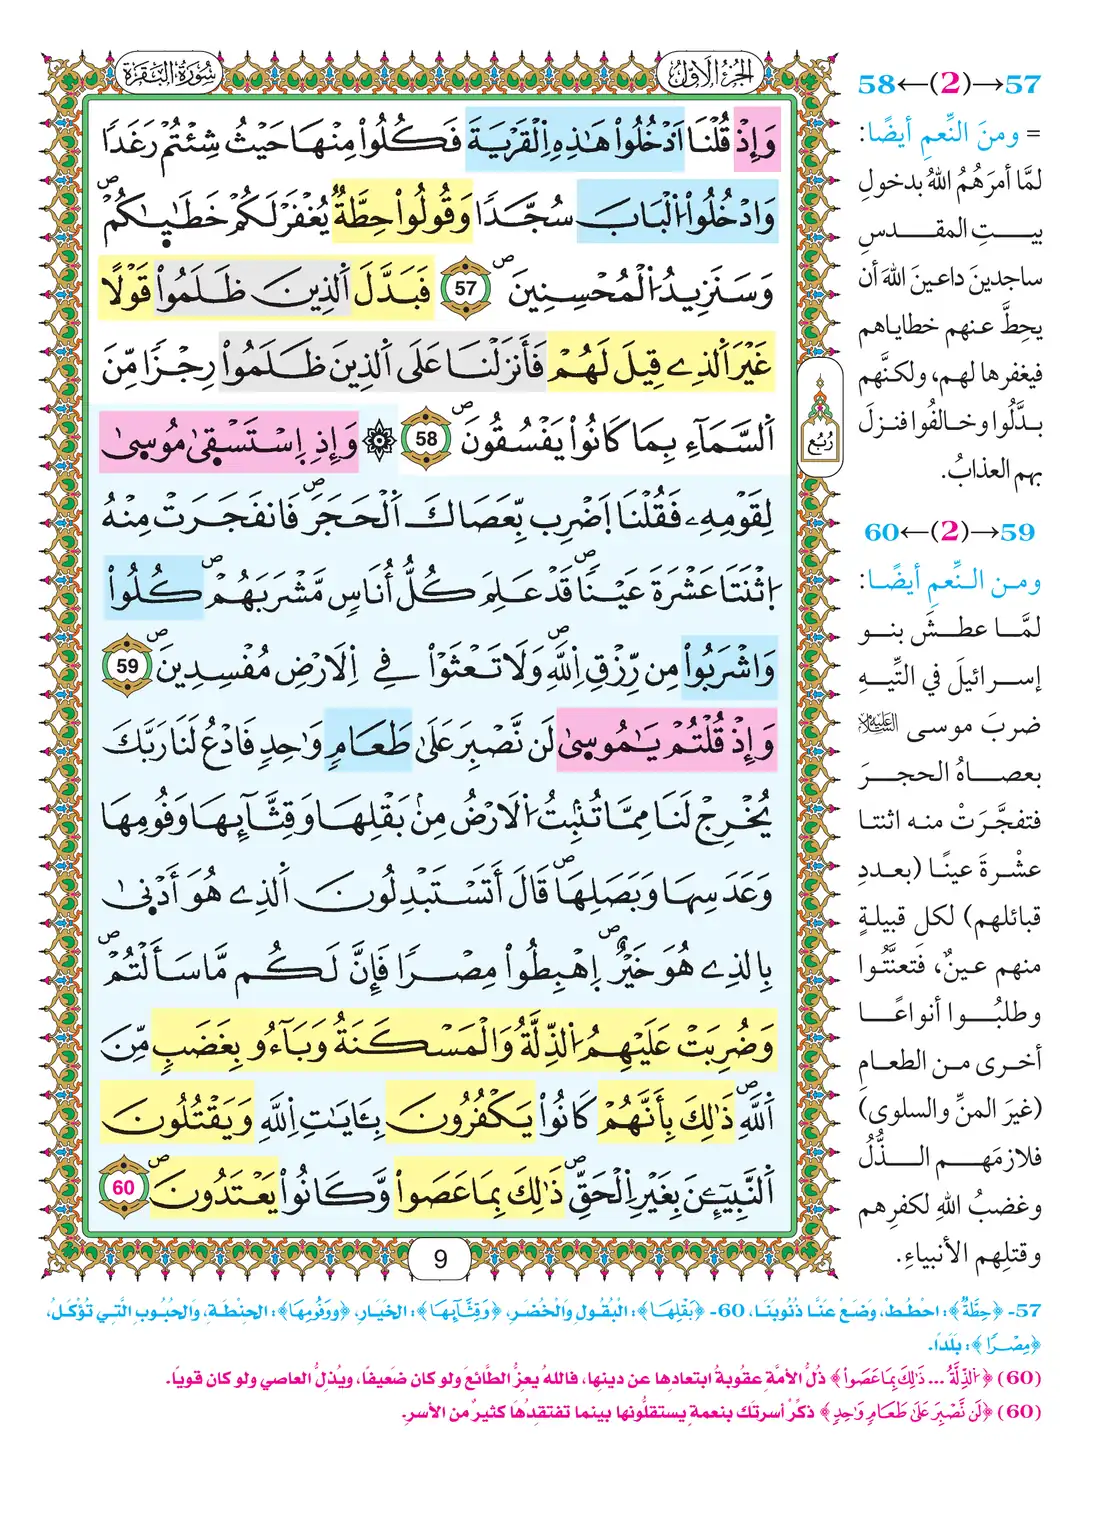 سُورَةُ الْبَقَرَةِ
الجُزْءُ الأَوَّلُ
وَإِذْ قُلْنَا اَدْخُلُواْ هَٰذِهِ اِ۬لْقَرْيَةَ فَكُلُواْ مِنْهَا حَيْثُ شِئْتُمْ رَغَداً
وَادْخُلُواْ اُ۬لْبَابَ سُجَّداً وَقُولُواْ حِطَّةٌ يُغْفَرْ لَكُمْ خَطَٰيَٰكُمْۖ
وَسَنَزِيدُ اُ۬لْمُحْسِنِينَۖ 57 فَبَدَّلَ اَ۬لذِينَ ظَلَمُواْ قَوْلًا
غَيْرَ اَ۬لذِے قِيلَ لَهُمْ فَأَنزَلْنَا عَلَى اَ۬لذِينَ ظَلَمُواْ رِجْزاً مِّنَ
اَ۬لسَّمَآءِ بِمَا كَانُواْ يَفْسُقُونَۖ 58 ۞ وَإِذِ اِ۪سْتَسْقَىٰ مُوسَىٰ
لِقَوْمِهِۦ فَقُلْنَا اَ۪ضْرِب بِّعَصَاكَ اَ۬لْحَجَرَۖ فَانفَجَرَتْ مِنْهُ
اُ۪ثْنَتَا عَشْرَةَ عَيْناًۖ قَدْ عَلِمَ كُلُّ أُنَاسٍ مَّشْرَبَهُمْۖ كُلُواْ
وَاشْرَبُواْ مِن رِّزْقِ اِ۬للَّهِۖ وَلَا تَعْثَوْاْ فِے اِ۬لَارْضِ مُفْسِدِينَۖ 59
وَإِذْ قُلْتُمْ يَٰمُوسَىٰ لَن نَّصْبِرَ عَلَىٰ طَعَامٍ وَٰحِدٍ فَادْعُ لَنَا رَبَّكَ
يُخْرِجْ لَنَا مِمَّا تُنۢبِتُ اُ۬لَارْضُ مِنۢ بَقْلِهَا وَقِثَّآئِهَا وَفُومِهَا
وَعَدَسِهَا وَبَصَلِهَاۖ قَالَ أَتَسْتَبْدِلُونَ اَ۬لذِے هُوَ أَدْنَىٰ
بِالذِے هُوَ خَيْرٌۖ اِ۪هْبِطُواْ مِصْراً فَإِنَّ لَكُم مَّا سَأَلْتُمْۖ
وَضُرِبَتْ عَلَيْهِمُ اُ۬لذِّلَّةُ وَالْمَسْكَنَةُ وَبَآءُو بِغَضَبٍ مِّنَ
اَ۬للَّهِۖ ذَٰلِكَ بِأَنَّهُمْ كَانُواْ يَكْفُرُونَ بِـَٔايَٰتِ اِ۬للَّهِ وَيَقْتُلُونَ
اَ۬لنَّبِيٓـِٕۧنَ بِغَيْرِ اِ۬لْحَقِّۖ ذَٰلِكَ بِمَا عَصَواْ وَّكَانُواْ يَعْتَدُونَۖ 60
رُبُع
9
57→(2)←58
= ومنَ النِّعمِ أيضًا:
لمَّا أمرَهُمُ اللهُ بدخولِ
بيتِ المقدسِ
ساجدينَ داعينَ اللهَ أن
يحطَّ عنهم خطاياهم
فيغفرها لهم، ولكنَّهم
بدَّلُوا وخالفُوا فنزلَ
بهم العذابُ.
59→(2)←60
ومن النِّعمِ أيضًا:
لمَّا عطشَ بنو
إسرائيلَ في التِّيهِ
ضربَ موسى عليه السلام
بعصاهُ الحجرَ
فتفجَّرَتْ منه اثنتا
عشْرةَ عينًا (بعددِ
قبائلهم) لكل قبيلةٍ
منهم عينٌ، فَتعنَّتُوا
وطلبُوا أنواعًا
أخرى من الطعامِ
(غيرَ المنِّ والسلوى)
فلازمَهم الذُّلُ
وغضبُ اللهِ لكفرِهم
وقتلِهم الأنبياءِ.
57- ﴿حِطَّةٌ﴾: احْطُطْ، وَضَعْ عَنَّا ذُنُوبَنَا، 60- ﴿بَقْلِهَا﴾: الْبُقُولِ وَالْخُضَرِ، ﴿وَقِثَّآئِهَا﴾: الخَيَارِ، ﴿وَفُومِهَا﴾: الحِنْطَةِ، وَالحُبُوبِ الَّتِي تُؤْكَلُ،
﴿مِصْراً﴾: بَلَدًا.
(60) ﴿اُ۬لذِّلَّةُ ... ذَٰلِكَ بِمَا عَصَواْ﴾ ذُلُّ الأمَّةِ عقُوبةُ ابتعادِها عن دينِها، فاللهُ يعزُّ الطَّائعَ ولو كان ضَعيفًا، ويُذلُّ العاصي ولو كان قويًا.
(60) ﴿لَن نَّصْبِرَ عَلَىٰ طَعَامٍ وَٰحِدٍ﴾ ذكِّرْ أسرتَك بنعمةٍ يستقلُّونها بينما تفتقدُهَا كثيرٌ من الأسرِ.